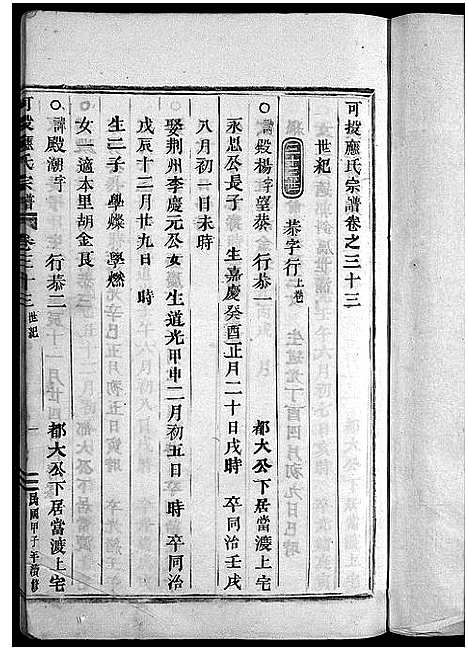 可投應氏宗譜卷之三十三
世紀
三十三世 恭字行 上卷
○諱殿楊字望恭 行恭一 都大公下居當渡上宅
永恩公長子 生嘉慶癸酉正月二十日戌時 卒同治壬戌
八月初一日未時
娶荆州李慶元公女 生道光甲申二月初五日 時 卒同治
戊辰十二月廿九日 時
生二子 學燦 學燃
女一適本里胡金良
○諱殿潮字 行恭二 都大公下居當渡上宅
可投應氏宗譜 卷三十三 世紀 一 民國甲子年續修